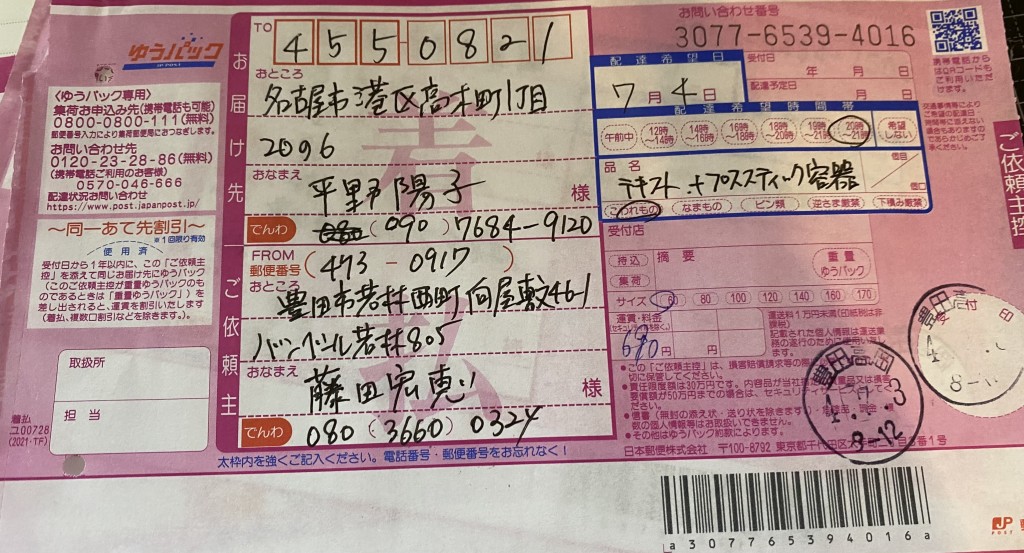 ゆうパック
JP POST
〈ゆうパック専用〉
集荷お申込み先(携帯電話も可能)
0800-0800-111(無料)
郵便番号入力により集荷郵便局におつなぎします。
お問い合わせ先
0120-23-28-86(無料)
(携帯電話ご利用のお客様)
0570-046-666
配達状況お問い合わせ
https://www.post.japanpost.jp/
〜同一あて先割引〜
※1回限り有効
使用済
受付日から1年以内に、この「ご依頼主
控」を添えて同じお届け先にゆうパック
(このご依頼主控が重量ゆうパックのも
のであるときは「重量ゆうパック」)を
差し出されると、運賃を割引いたします
(着払、複数口割引などを除きます)。
取扱所
担当
着払
ユ00728
(2021・TF)
お届け先
TO
455-0821
おところ
名古屋市港区高木町1丁目
2096
おなまえ
平野陽子 様
でんわ
(090) 7684-9120
ご依頼主
FROM
郵便番号(473-0917)
おところ
豊田市若林西町向屋敷46-1
若林805
おなまえ
藤田宏恵 様
でんわ
080(3660)0324
太枠内を強くご記入ください。電話番号・郵便番号をお忘れなく!
着払
お問い合わせ番号
3077-6539-4016
配達希望日
7月4日
受付日 年 月 日
配達予定日 月 日
配達希望時間帯
午前中
12時〜14時
14時〜16時
16時〜18時
18時〜20時
19時〜21時
20時〜21時
希望しない
品名
個目
個口
テキスト+プラスティック容器
こわれもの
なまもの
ビン類
逆さま厳禁
下積み厳禁
受付店
持込
集荷
摘要
重量
ゆうパック
サイズ 60 80 100 120 140 160 170
運賃・料金
690円
円
●この「ご依頼主控」は、損害賠償請求等の
切に保管してください。
日本郵便株式会社 〒100-8792 東京都千代田区
●その他はゆうパック約款によります。
ご依頼主控
豊田高岡
4.7.3
8-12
a307765394016a
JP
POST